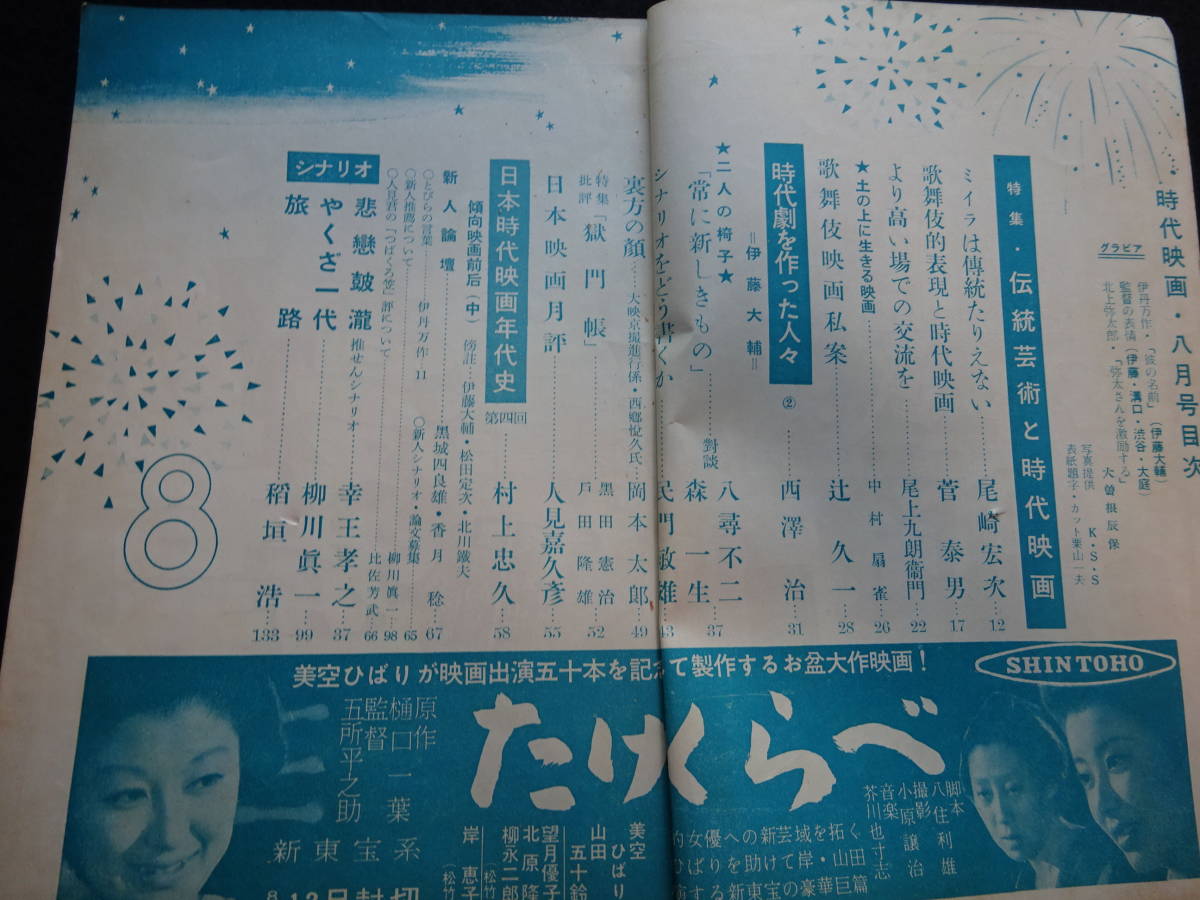 時代映画・八月号目次
グラビア
伊丹万作・「彼の名前」(伊藤大輔)
監督の表情(伊藤・溝口・渋谷・大庭)
北上弥太郎・「弥太さんを激励する」
大曽根辰保
写真提供 K・S・S
表紙題字・カット栗山一夫
特集・伝統芸術と時代映画
ミイラは傳統たりえない……尾崎宏次…12
歌舞伎的表現と時代映画……菅泰男…17
より高い場での交流を……尾上九朗衞門…22
★土の上に生きる映画……中村扇雀…26
歌舞伎映画私案……辻久一…28
時代劇を作った人々 ② 西澤治…31
=伊藤大輔=
★二人の椅子★
「常に新しきもの」……對談 八尋不二 森一生…37
シナリオをどう書くか……民門敏雄…43
裏方の顔……大映京撮進行係・西郷悅久氏…岡本太郎…49
特集批評「獄門帳」……黒田憲治 戸田隆雄…52
日本映画月評……人見嘉久彦…55
日本時代映画年代史 第四回 村上忠久…58
傾向映画前后(中) 傍註・伊藤大輔・松田定次・北川鐵夫
新人論壇……黒城四良雄・香月稔…67
○とびらの言葉……伊丹万作 11
○新人シナリオ・論文募集…65
○新人推薦について……柳川眞一…98
○人見君の「つばくろ笠」評について……比佐芳武…66
シナリオ
悲戀皷瀧 推せんシナリオ……幸王孝之…37
やくざ一代……柳川眞一…99
旅路……稻垣浩…133
8
SHINTOHO
美空ひばりが映画出演五十本を記念て製作するお盆大作映画!
たけくらべ
脚本 八住利雄
撮影 小原譲治
音楽 芥川也寸志
原作 樋口一葉
監督 五所平之助
新東宝系
8 12日封切
美空ひばり
山田五十鈴
望月優子
北原隆
柳永二郎
(松竹
岸惠子
(松竹
的女優への新芸域を拓く
ひばりを助けて岸・山田
演する新東宝の豪華巨篇